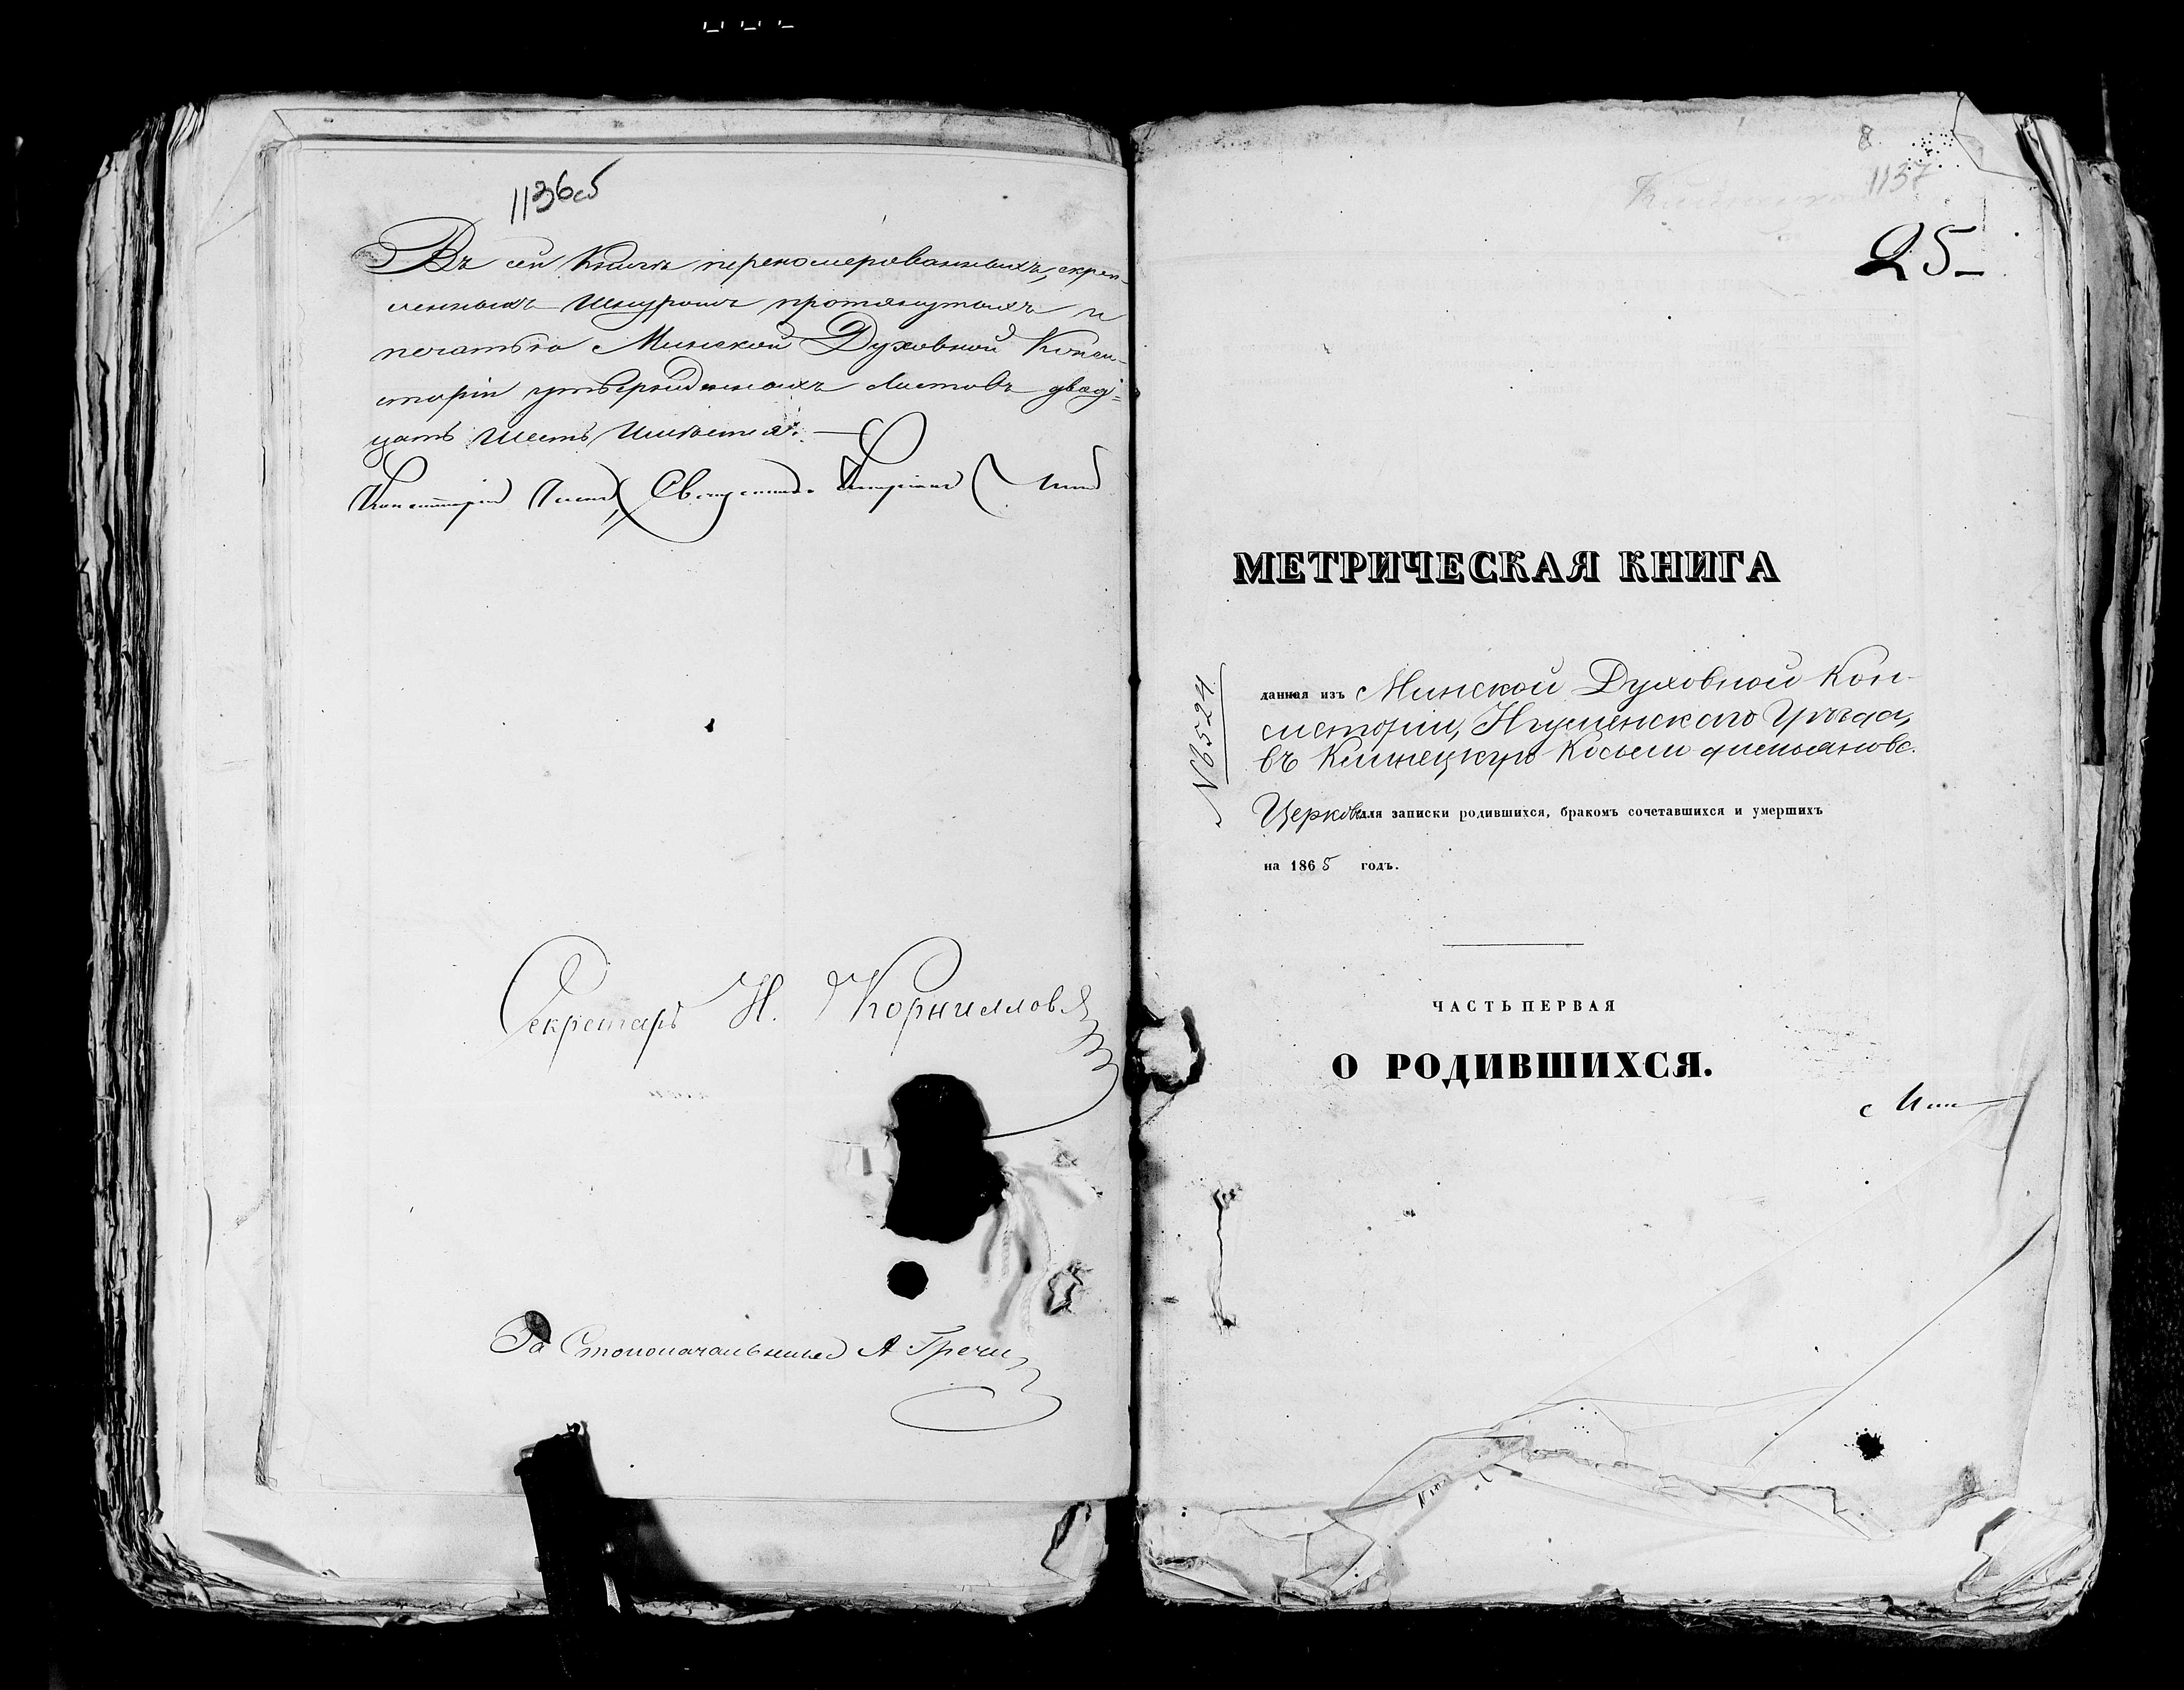 1136об
Въ сей Книгѣ переномерованныхъ, скреп-
ленныхъ Шнуромъ протянутыхъ и
печатью Минской Духовной Конси-
сторіи утвержденныхъ Листовъ двад=
цать шесть Имѣется. —
Консисторіи Членъ Священникъ
Секретарь Н. Корниловъ
За Столоначальника А Гречи
8
1137
25
МЕТРИЧЕСКАЯ КНИГА
№6524
данная изъ Минской Духовной Кон-
систоріи, Игуменскаго Уѣзда,
въ Косьмо дитьяновс.
Церковь для записки родившихся, бракомъ сочетавшихся и умершихъ
на 1865 годъ.
ЧАСТЬ ПЕРВАЯ
О РОДИВШИХСЯ.